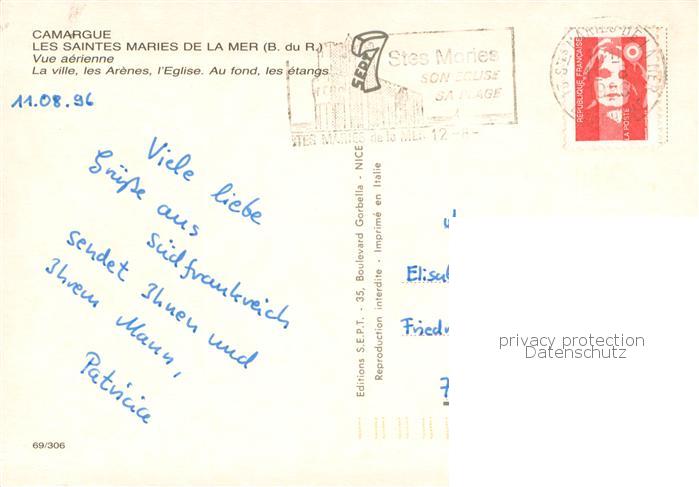 CAMARGUE
LES SAINTES MARIES DE LA MER (B. du R.)
Vue aérienne
La ville, les Arènes, l'Eglise. Au fond, les étangs
11.08.96
Viele liebe
Grüße aus
Südfrankreich
sendet Ihnen und
Ihrem Mann,
Patricia
69/306
SEPT
Stes Maries
SON EGLISE
SA PLAGE
STES MARIES de la MER 12
REPUBLIQUE FRANÇAISE
LA POSTE
Editions S.E.P.T. - 35, Boulevard Gorbella - NICE
Reproduction interdite - Imprimé en Italie
Elisa
Friedr
7
privacy protection
Datenschutz